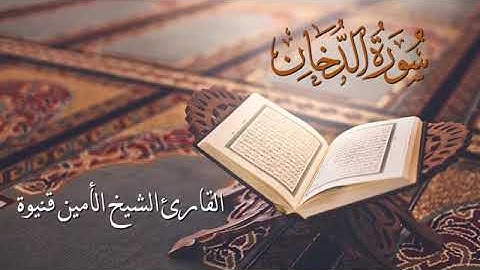 سُورَةُ الدُّخَانِ
القارئ الشيخ الأمين قنيوة